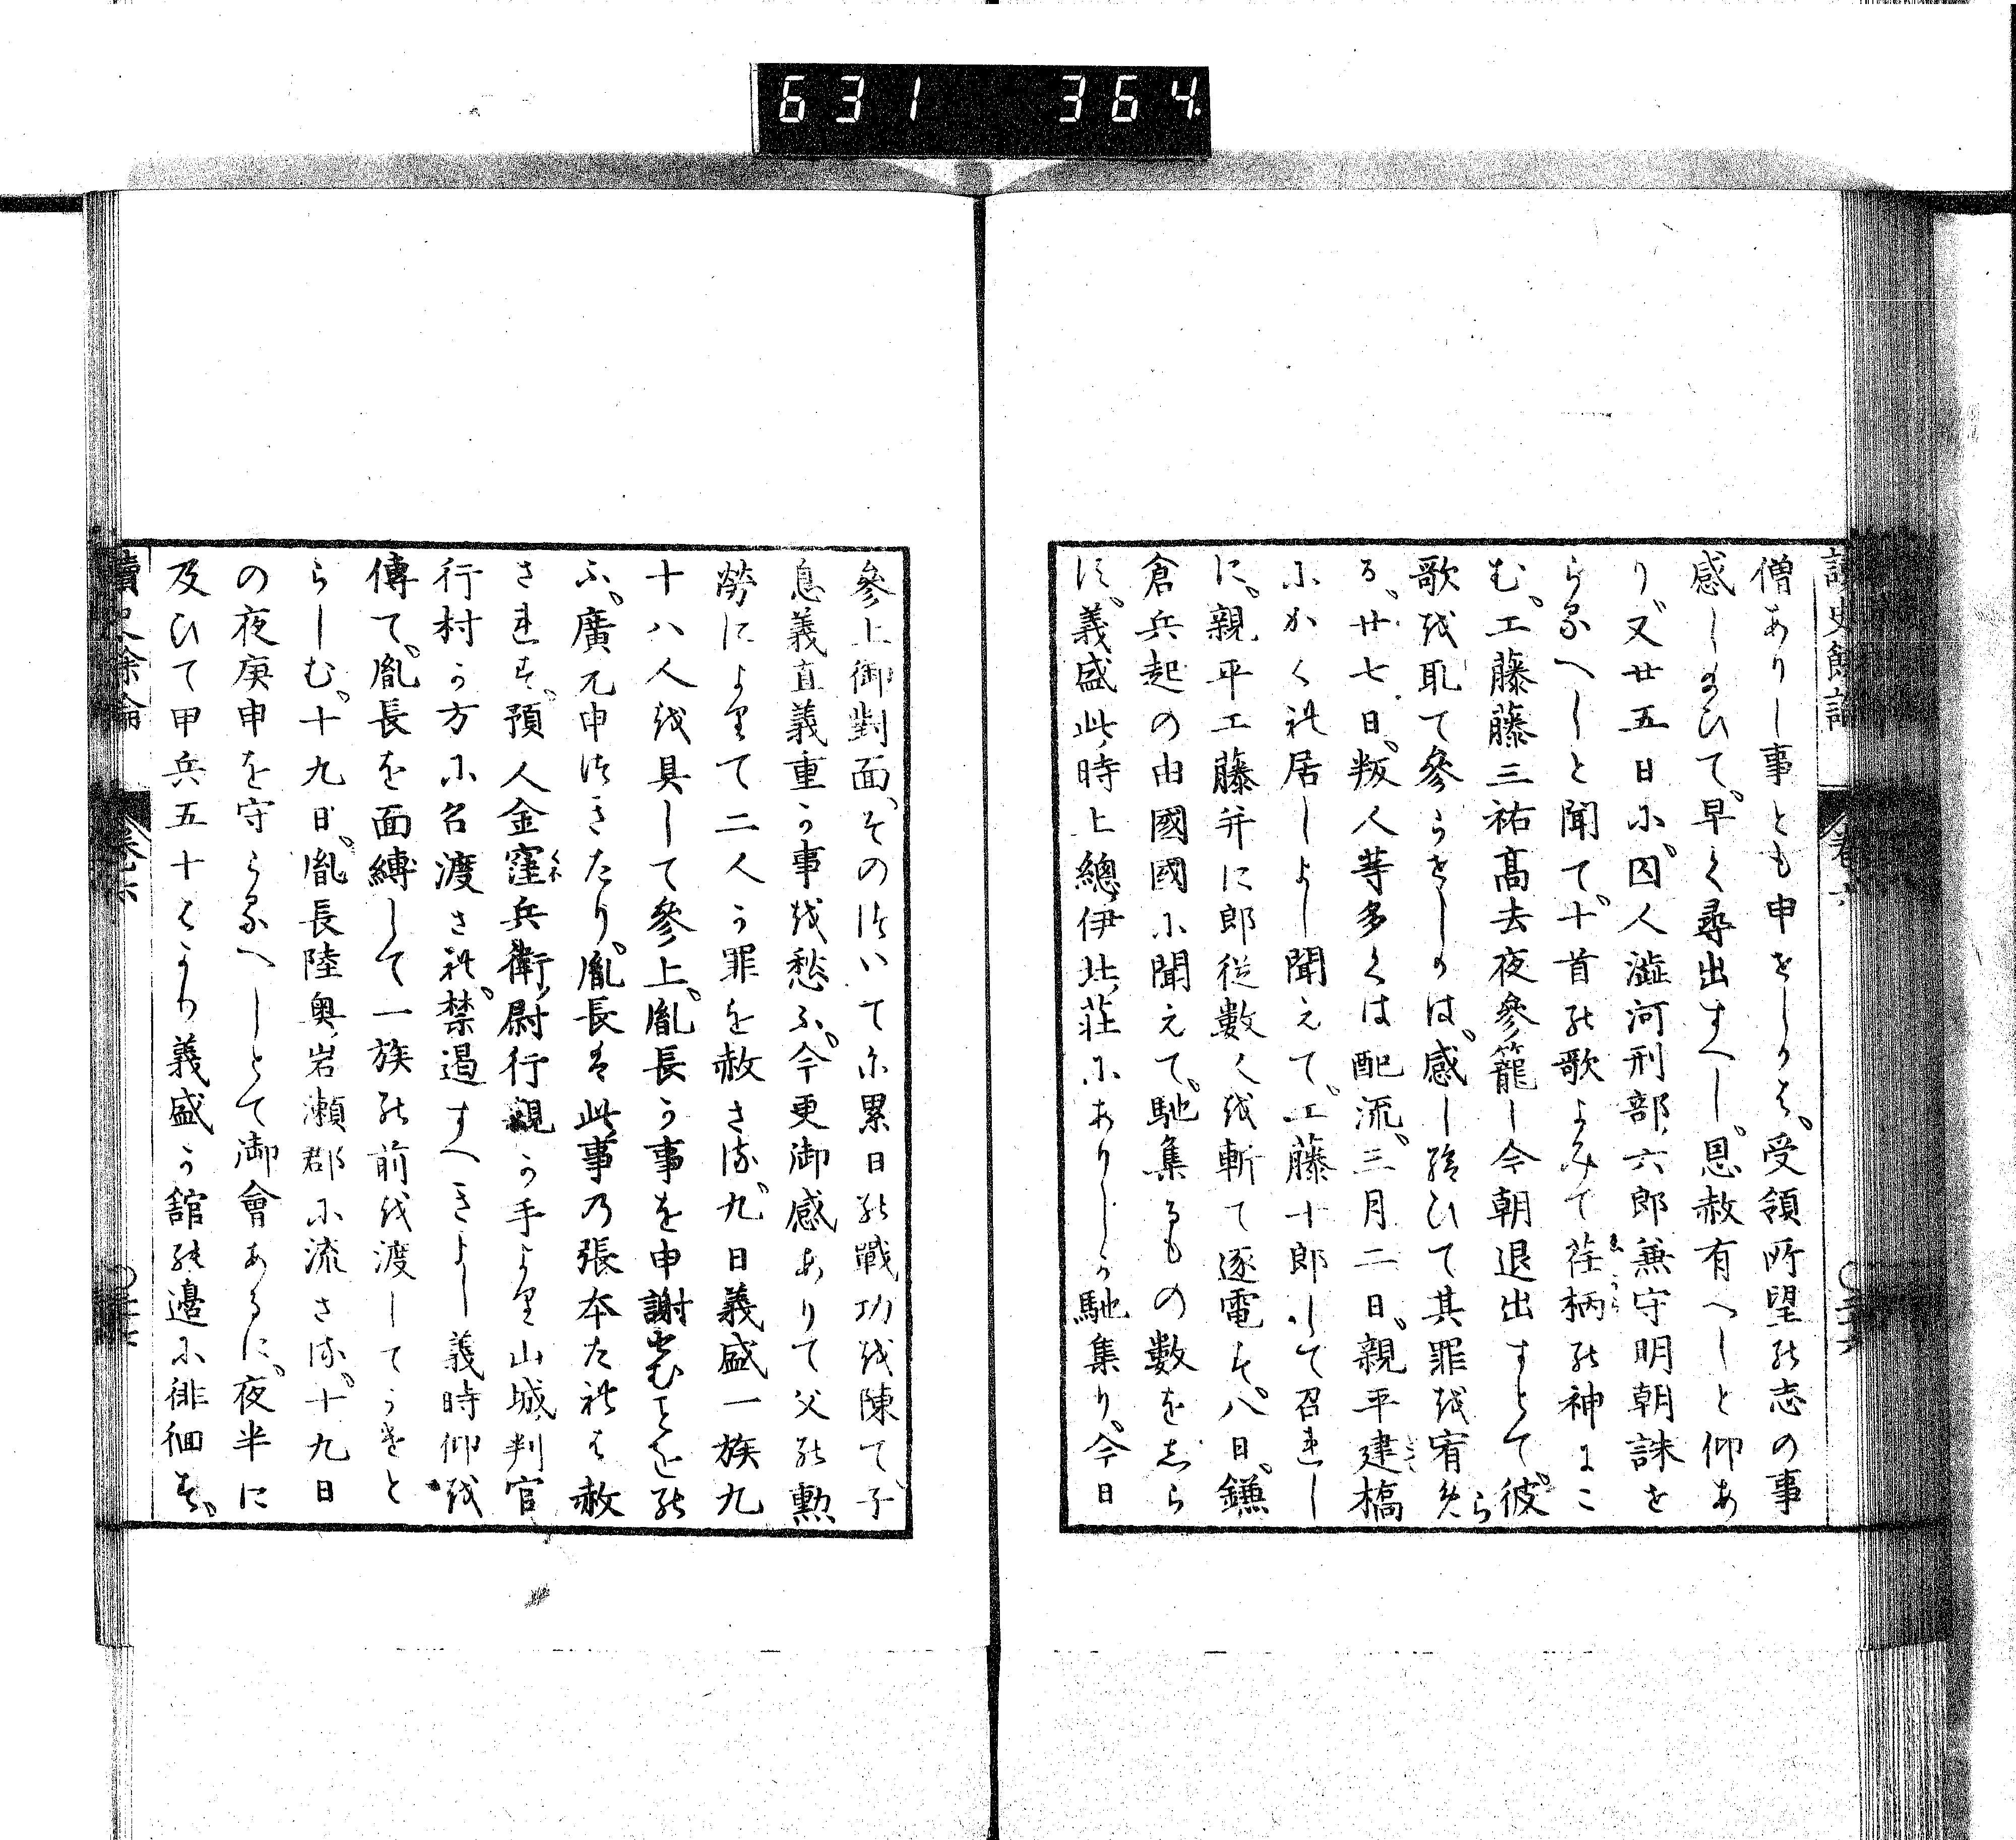 631 364
僧ありし事とも申せしかは、受領所望の志の事
感し給ひて、早く尋出すへし、恩赦有へしと仰あ
り、又廿五日に、囚人澁河刑部六郎兼守明朝誅せ
らるへしと聞て、十首の歌よみて荏柄の神にこ
む、工藤藤三祐髙去夜參籠し今朝退出すとて、彼
歌を取て參らせしかは、感し給ひて其罪を宥めら
る、廿七日、叛人等多くは配流、三月二日、親平建橋
にかくれ居しよし聞えて、工藤十郎して召れし
に、親平工藤并に郎従数人を斬て逐電す、八日、鎌
倉兵起の由國國に聞えて、馳集るもの数をしら
す、義盛此時上總伊北荘にありしか馳集り、今日
參上御對面、そのついてに累日の戰功を陳て、子
息義直義重か事を愁ふ、今更御感ありて父の勲
勞によりて二人か罪を赦さる、九日義盛一族九
十八人を具して參上、胤長か事を申謝せむことをね
ふ、廣元申つきたり、胤長は此事乃張本たれは赦
されす、預人金窪兵衛尉行親か手より山城判官
行村か方に召渡され、禁遏すへきよし義時仰を
傳て、胤長を面縛して一族の前を渡してうけと
らしむ、十九日、胤長陸奥岩瀬郡に流さる、十九日
の夜庚申を守らるへしとて御會あるに、夜半に
及ひて甲兵五十はかり義盛か舘の邊に徘徊す、
讀史餘論 卷六